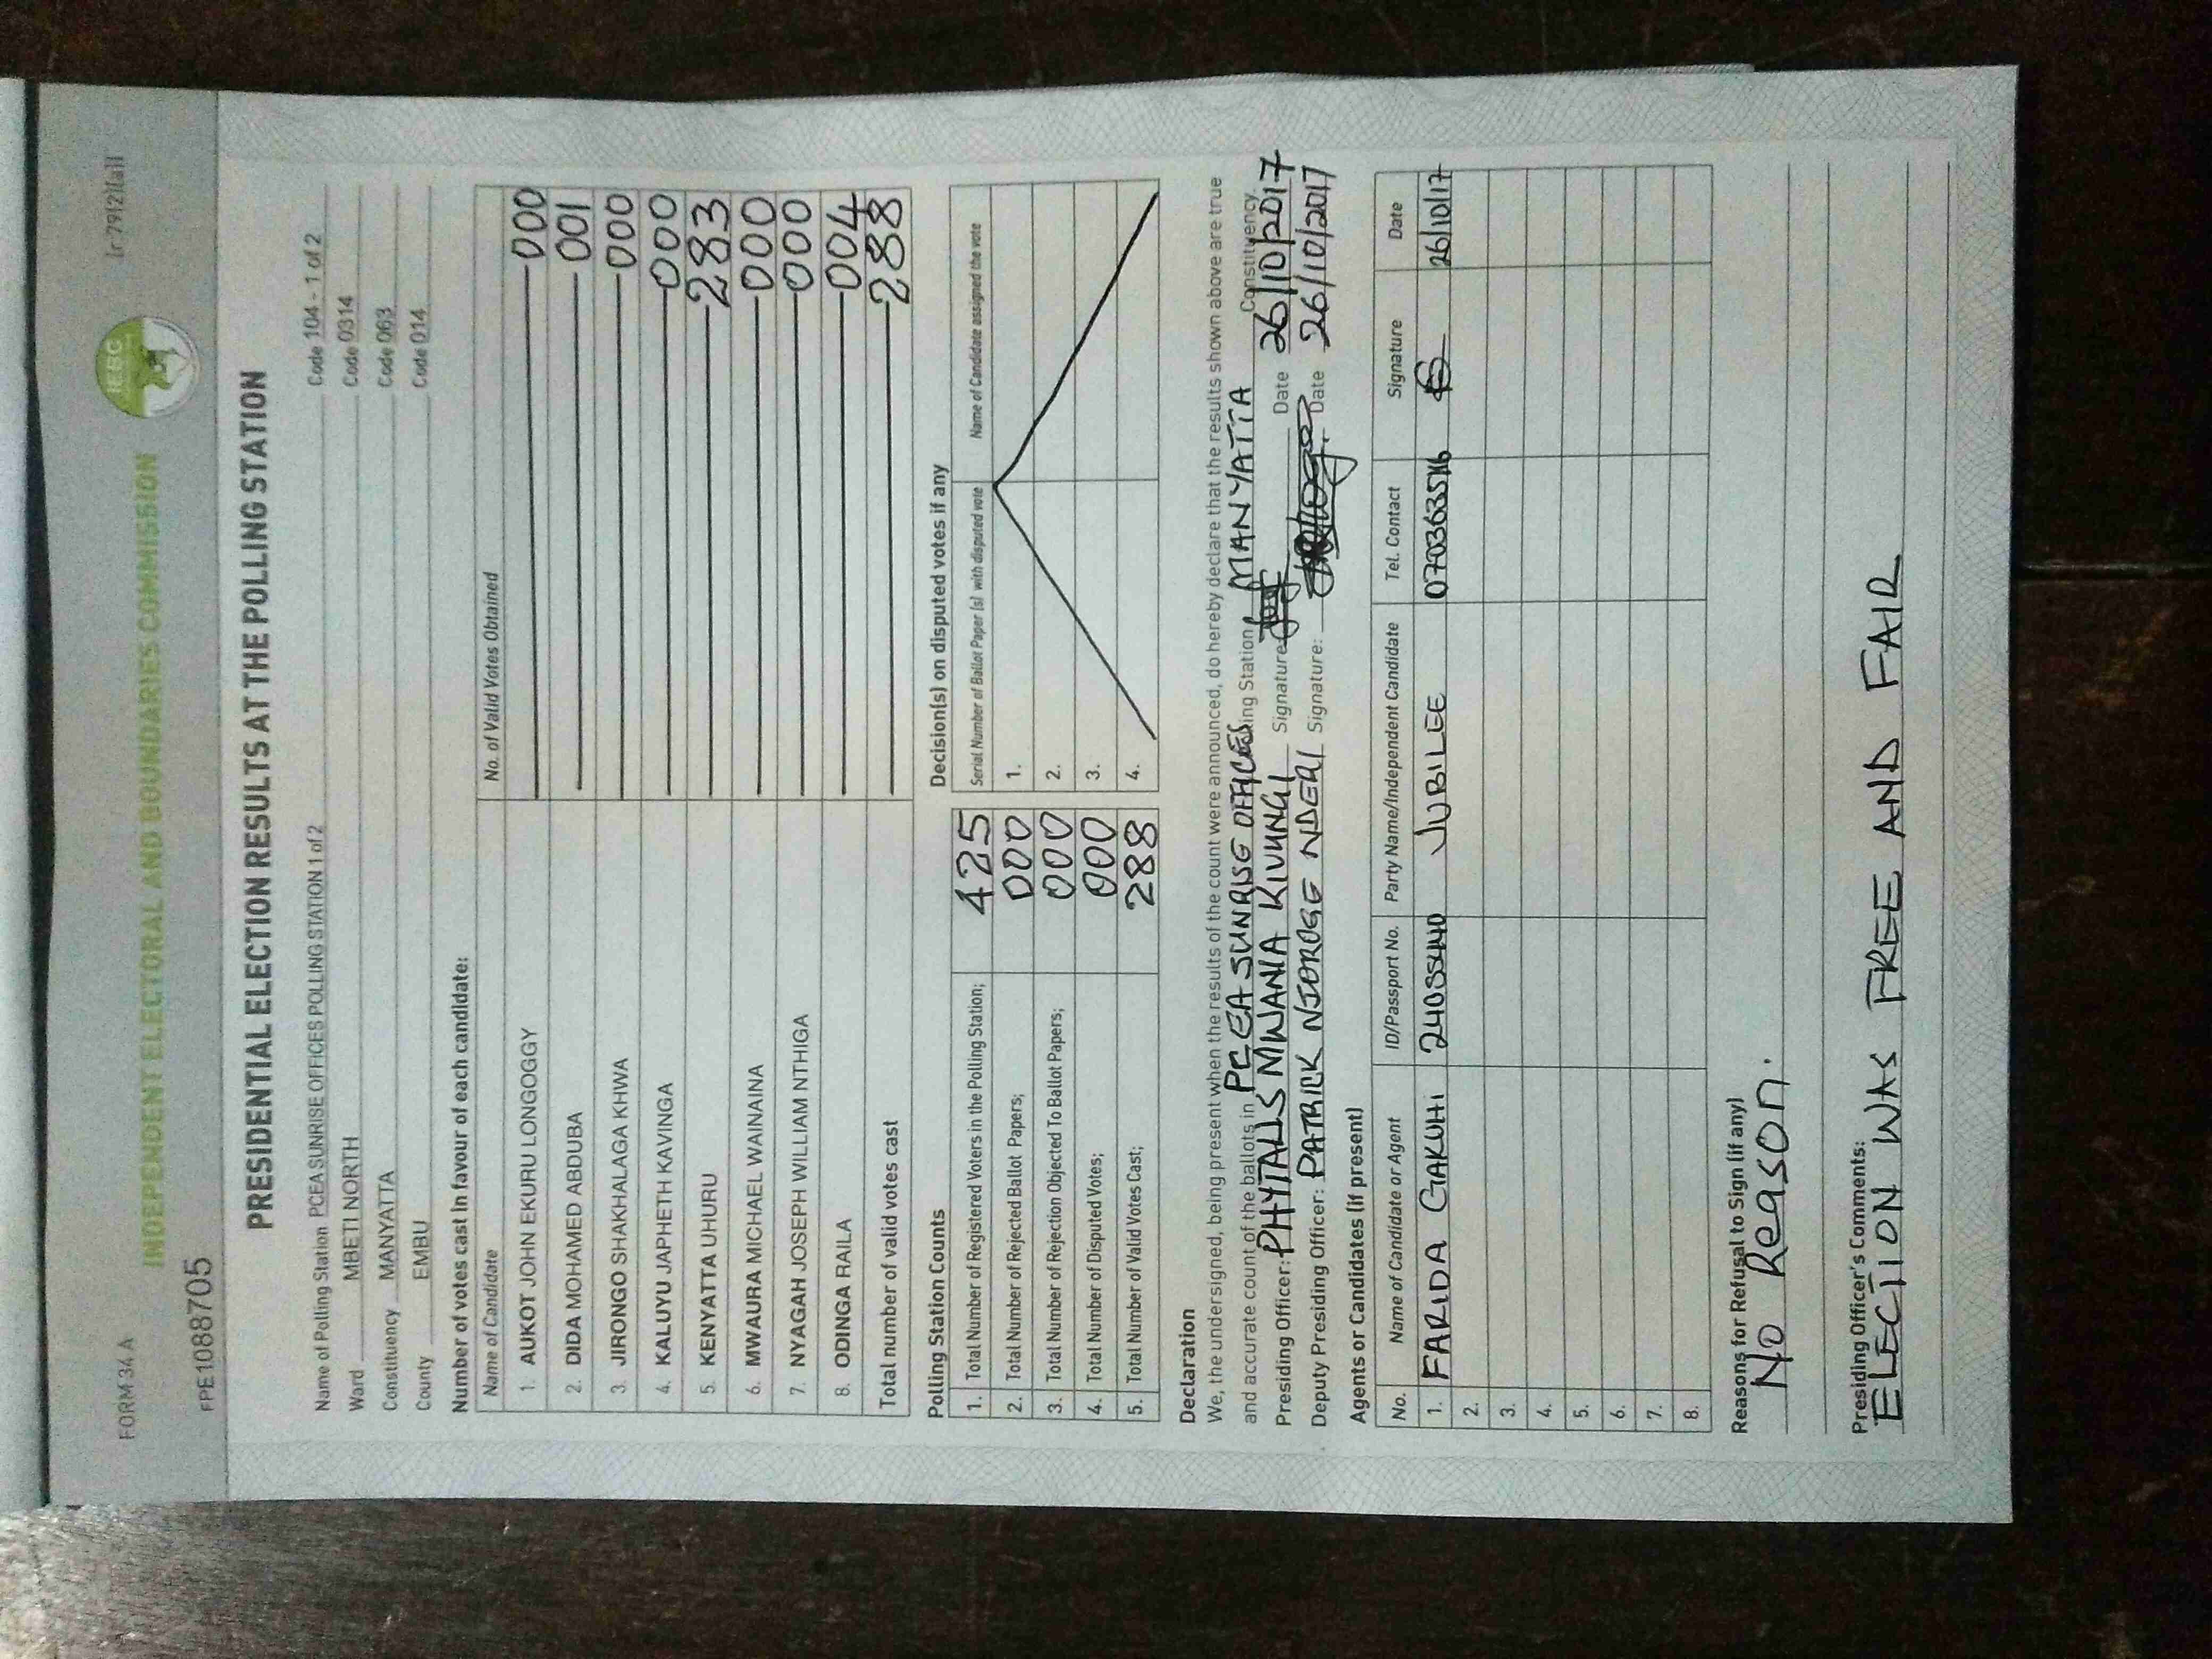 FORM 34 A
(r 79(2)(a))
INDEPENDENT ELECTORAL AND BOUNDARIES COMMISSION
IEBC
FPE1088705
PRESIDENTIAL ELECTION RESULTS AT THE POLLING STATION
Name of Polling Station PCEA SUNRISE OFFICES POLLING STATION 1 of 2 Code 104 - 1 of 2
Ward MBETI NORTH Code 0314
Constituency MANYATTA Code 063
County EMBU Code 014
Number of votes cast in favour of each candidate:
Name of Candidate No. of Valid Votes Obtained
1. AUKOT JOHN EKURU LONGOGGY 000
2. DIDA MOHAMED ABDUBA 001
3. JIRONGO SHAKHALAGA KHWA 000
4. KALUYU JAPHETH KAVINGA 000
5. KENYATTA UHURU 283
6. MWAURA MICHAEL WAINAINA 000
7. NYAGAH JOSEPH WILLIAM NTHIGA 000
8. ODINGA RAILA 004
Total number of valid votes cast 288
Polling Station Counts
1. Total Number of Registered Voters in the Polling Station; 425
2. Total Number of Rejected Ballot Papers; 000
3. Total Number of Rejection Objected To Ballot Papers; 000
4. Total Number of Disputed Votes; 000
5. Total Number of Valid Votes Cast; 288
Decision(s) on disputed votes if any
Serial Number of Ballot Paper (s) with disputed vote Name of Candidate assigned the vote
1.
2.
3.
4.
Declaration
We, the undersigned, being present when the results of the count were announced, do hereby declare that the results shown above are true
and accurate count of the ballots in PCEA SUNRISE OFFICES Station, MANYATTA Constituency.
Presiding Officer: MWANIA KIVUNGI Signature Date 26/10/2017
Deputy Presiding Officer: PATRICK NJOROGE NDERI Signature: Date 26/10/2017
Agents or Candidates (if present)
No. Name of Candidate or Agent ID/Passport No. Party Name/Independent Candidate Tel. Contact Signature Date
1. FARIDA GAKUHI JUBILEE 26/10/17
2.
3.
4.
5.
6.
7.
8.
Reasons for Refusal to Sign (if any)
No Reason.
Presiding Officer's Comments:
ELECTION WAS FREE AND FAIR